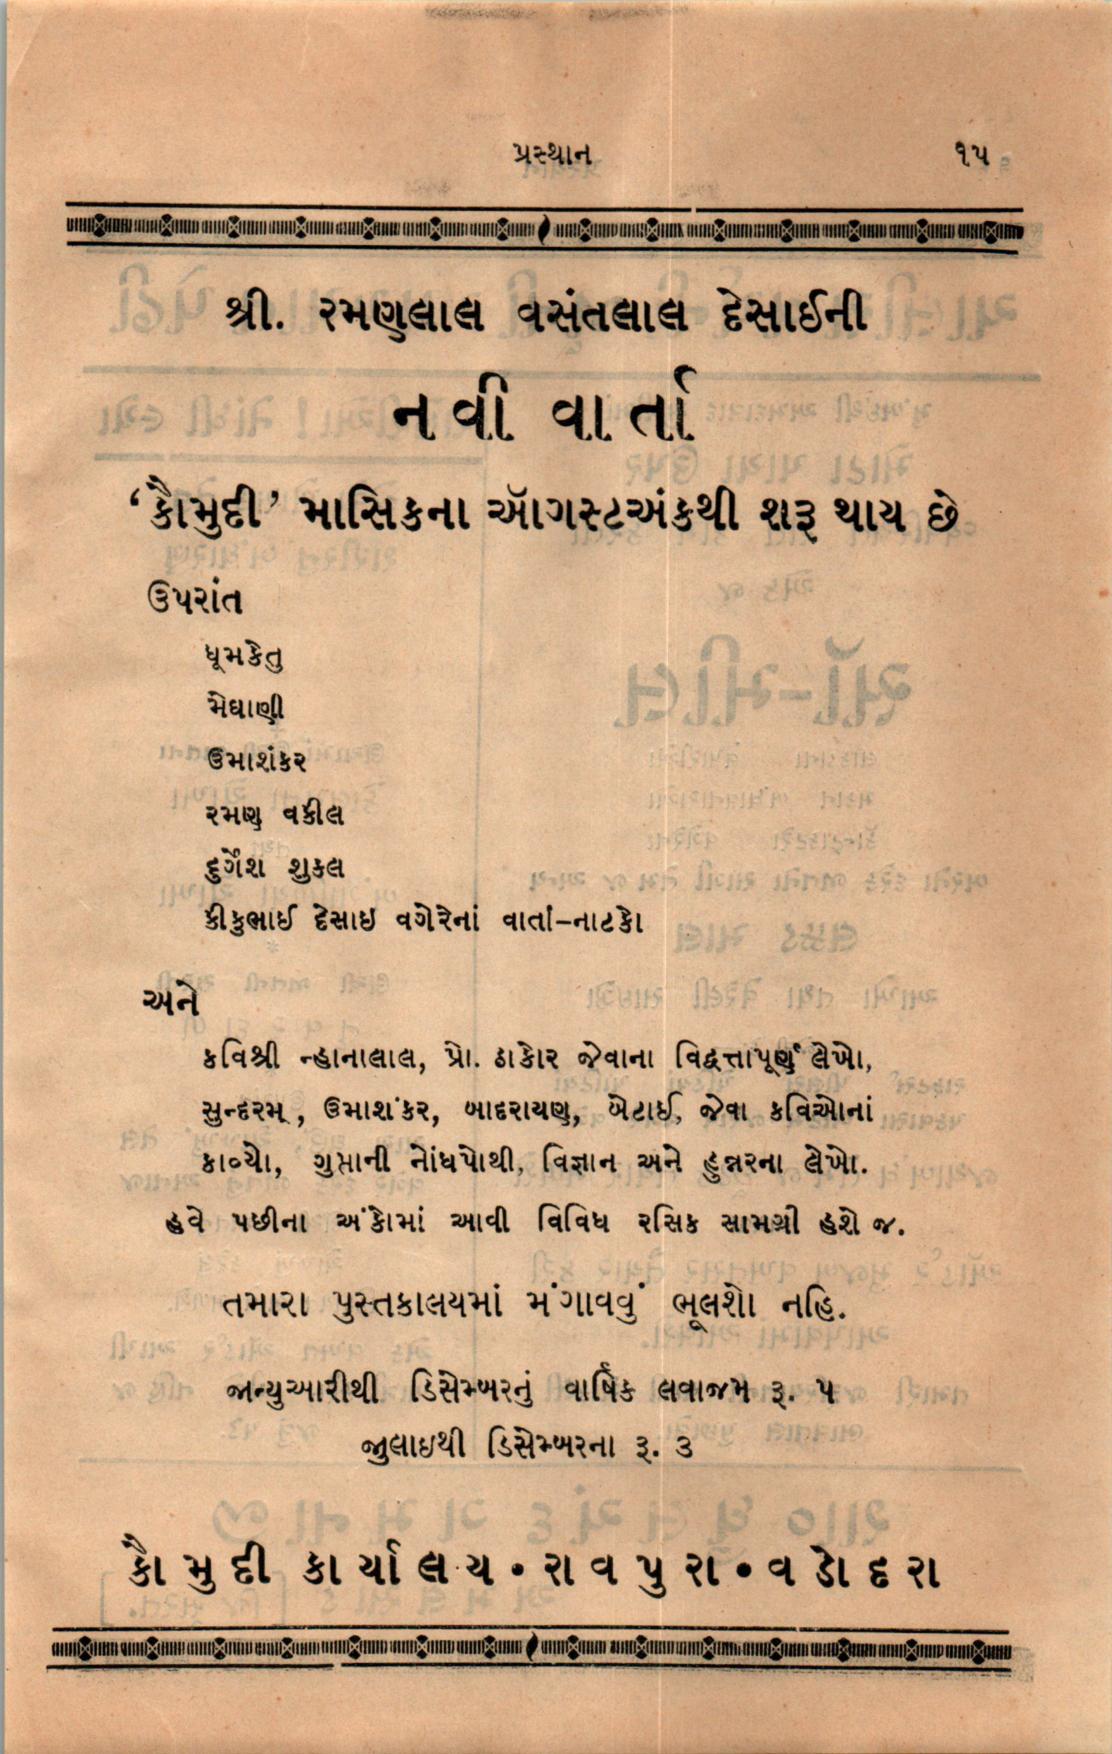 પ્રસ્થાન ૧૫
શ્રી. રમણલાલ વસંતલાલ દેસાઈની
નવી વાર્તા
‘કૌમુદી’ માસિકના ઑગસ્ટઅંકથી શરૂ થાય છે
ઉપરાંત
ધૂમકેતુ
મેઘાણી
ઉમાશંકર
રમણ વકીલ
દુર્ગેશ શુકલ
કીકુભાઈ દેસાઇ વગેરેનાં વાર્તા–નાટકો
અને
કવિશ્રી ન્હાનાલાલ, પ્રો. ઠાકોર જેવાના વિદ્વત્તાપૂર્ણ લેખો,
સુન્દરમ્, ઉમાશંકર, બાદરાયણ, બેટાઈ, જેવા કવિઓનાં
કાવ્યો, ગુપ્તાની નોંધપોથી, વિજ્ઞાન અને હુન્નરના લેખો.
હવે પછીના અંકોમાં આવી વિવિધ રસિક સામગ્રી હશે જ.
તમારા પુસ્તકાલયમાં મંગાવવું ભૂલશો નહિ.
જાન્યુઆરીથી ડિસેમ્બરનું વાર્ષિક લવાજમ રૂ. ૫
જુલાઇથી ડિસેમ્બરના રૂ. ૩
કૌમુદી કાર્યાલય • રાવપુરા • વડોદરા